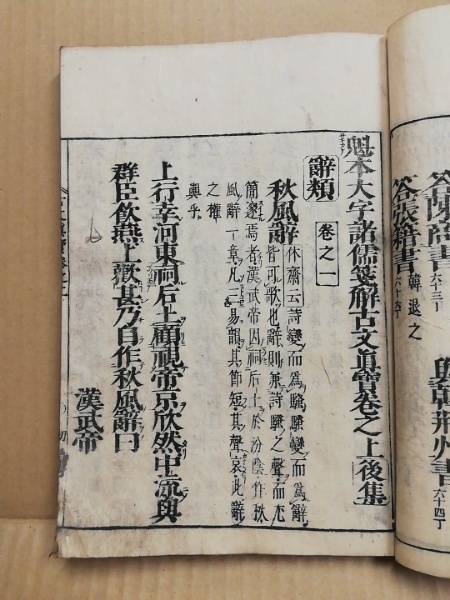 答陳商書六十三丁
與韓荊州書六十四丁
答張籍書六十六丁
韓退之
魁本大字諸儒箋解古文眞寶卷之上後集
辭類
卷之一
秋風辭
漢武帝
休齋云詩變而為騷騷變而為辭
皆可歌也辭則兼詩騷之聲而尤
簡邃焉者漢武帝因祠后土於汾陰作秋
風辭一章凡三易韻其節短其聲哀此辭
之權
輿乎
上行幸河東祠后土顧視帝京欣然中流與
群臣飲燕上歡甚乃自作秋風辭曰